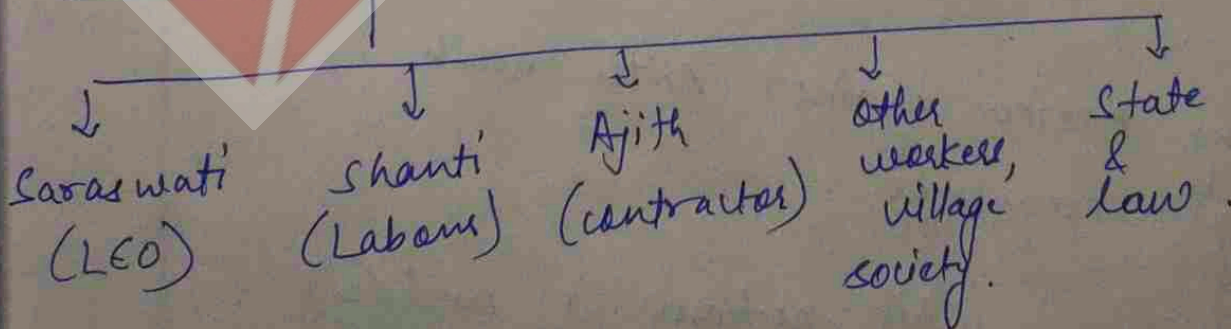 Saraswati
(LEO)
Shanti
(Labour)
Ajith
(contractor)
other
workers,
village
society.
State
&
law.